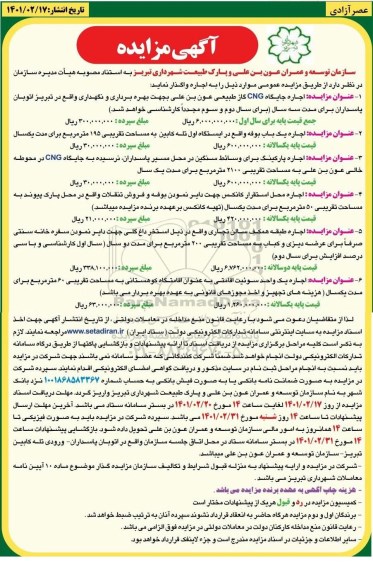 عصر آزادی
تاریخ انتشار: ۱۴۰۱/۰۲/۱۷
آگهی مزایده
سازمان توسعه و عمران عون بن علی و پارک طبیعت شهرداری تبریز به استناد مصوبه هیأت مدیره سازمان
در نظر دارد از طریق مزایده عمومی موارد ذیل را به اجاره واگذار نماید:
۱-عنوان مزایده: اجاره جایگاه CNG گاز طبیعی عون بن علی بجهت بهره برداری و نگهداری واقع در تبریز اتوبان
پاسداران برای مدت سه سال (برای سال دوم و سوم مجدداً کارشناسی خواهد گردید)
جمع قیمت پایه برای سال اول: ۶,۰۰۰,۰۰۰,۰۰۰ ریال مبلغ سپرده: ۳۰۰,۰۰۰,۰۰۰ ریال
۲-عنوان مزایده: اجاره یک باب بوفه واقع در ایستگاه اول تله کابین به مساحت تقریبی ۱۹۵ مترمربع برای مدت یکسال
قیمت پایه یکسالانه: ۶۰۰,۰۰۰,۰۰۰ ریال مبلغ سپرده: ۳۰,۰۰۰,۰۰۰ ریال
۳-عنوان مزایده: اجاره پارکینگ برای وسائط سنگین در محل مسیر پاسداران، نرسیده به جایگاه CNG در محوطه
خالی عون بن علی به مساحت تقریبی ۲۱۰۰ مترمربع برای مدت یک سال
قیمت پایه یکسالانه: ۶۰۰,۰۰۰,۰۰۰ ریال مبلغ سپرده: ۳۰,۰۰۰,۰۰۰ ریال
۴-عنوان مزایده: اجاره محل استقرار کانکس جهت دایر نمودن بوفه و فروش تنقلات واقع در محل پارک پیوند به
مساحت تقریبی ۵۰ مترمربع برای مدت یکسال (تهیه کانکس برعهده برنده مزایده میباشد)
قیمت پایه یکسالانه: ۴۲۰,۰۰۰,۰۰۰ ریال مبلغ سپرده: ۲۱,۰۰۰,۰۰۰ ریال
۵-عنوان مزایده: اجاره طبقه همکف پاویان تجاری واقع در ذیل استخر داغ گلی جهت دایر نمودن سفره خانه سنتی
صرفاً برای عرضه دیزی و کباب به مساحت تقریبی ۲۰۰ مترمربع برای مدت دو سال (سال اول کارشناسی و با سی
درصد افزایش برای سال دوم)
قیمت پایه دوسالانه: ۶,۷۶۲,۰۰۰,۰۰۰ ریال مبلغ سپرده: ۳۳۸,۱۰۰,۰۰۰ ریال
۶-عنوان مزایده: اجاره یک واحد سوئیت اقامتی به عنوان اقامتگاه کوهستانی به مساحت تقریبی ۶۰ مترمربع برای
مدت یکسال (هزینه های تجهیز و اخذ مجوزهای قانونی به عهده بهره بردار می باشد)
قیمت پایه یکسالانه: ۱,۲۶۰,۰۰۰,۰۰۰ ریال مبلغ سپرده: ۶۳,۰۰۰,۰۰۰ ریال
لذا از متقاضیان دعوت می شود با رعایت قانون منع مداخله در معاملات دولتی، از تاریخ انتشار آگهی جهت اخذ
اسناد مزایده به سایت اینترنتی سامانه تدارکات الکترونیکی دولت (ستاد ایران) www.setadiran.ir مراجعه نمایند. لازم
به ذکر است کلیه مراحل برگزاری مزایده از دریافت اسناد تا ارائه پیشنهادات و بازگشایی پاکتها از طریق درگاه سامانه
تدارکات الکترونیکی دولت انجام خواهد شد. ضمناً شرکت کنندگانی که عضو سامانه نمی باشند جهت شرکت در مزایده
باید نسبت به انجام مراحل ثبت نام در سایت مذکور و دریافت گواهی امضای الکترونیکی اقدام نمایند. سپرده شرکت
در مزایده به صورت ضمانت نامه بانکی یا به صورت فیش بانکی به حساب شماره ۱۰۰۱۸۶۸۵۸۳۳۶۷ نزد بانک
شهر به نام سازمان توسعه و عمران عون بن علی و پارک طبیعت شهرداری تبریز واریز گردد. مهلت دریافت اسناد
مزایده از روز ۱۴۰۱/۰۲/۱۷ لغایت ساعت ۱۴ مورخ ۱۴۰۱/۰۲/۲۰ در بستر سامانه ستاد می باشد. آخرین مهلت ارسال
پیشنهادات تا ساعت ۱۴ روز شنبه مورخ ۱۴۰۱/۰۲/۳۱ می باشد. سپرده شرکت در مزایده باید به صورت فیزیکی تا
ساعت ۱۴ همانروز به امور مالی سازمان توسعه و عمران عون بن علی تحویل داده شود. بازگشایی پیشنهادات ساعت
۱۴ مورخ ۱۴۰۱/۰۲/۳۱ در بستر سامانه ستاد در محل اتاق جلسه سازمان واقع در اتوبان پاسداران- ورودی تله کابین
تبریز- سازمان توسعه و عمران عون بن علی میباشد.
-شرکت در مزایده و ارایه پیشنهاد به منزله قبول شرایط و تکالیف سازمان مزایده گذار موضوع ماده ۱۰ آیین نامه
معاملات شهرداری تبریز می باشد.
- هزینه چاپ آگهی به عهده برنده مزایده می باشد.
- کمیسیون مزایده در رد و قبول هریک از پیشنهادات مختار است
- برندگان اول و دوم مزایده هرگاه حاضر به انعقاد قرارداد نشوند سپرده آنان به ترتیب ضبط خواهد شد.
- رعایت قانون منع مداخله کارکنان دولت در معاملات دولتی در مزایده فوق الزامی می باشد.
- سایر اطلاعات و جزئیات در اسناد مزایده مندرج است و جزء لاینفک قرارداد خواهد بود.